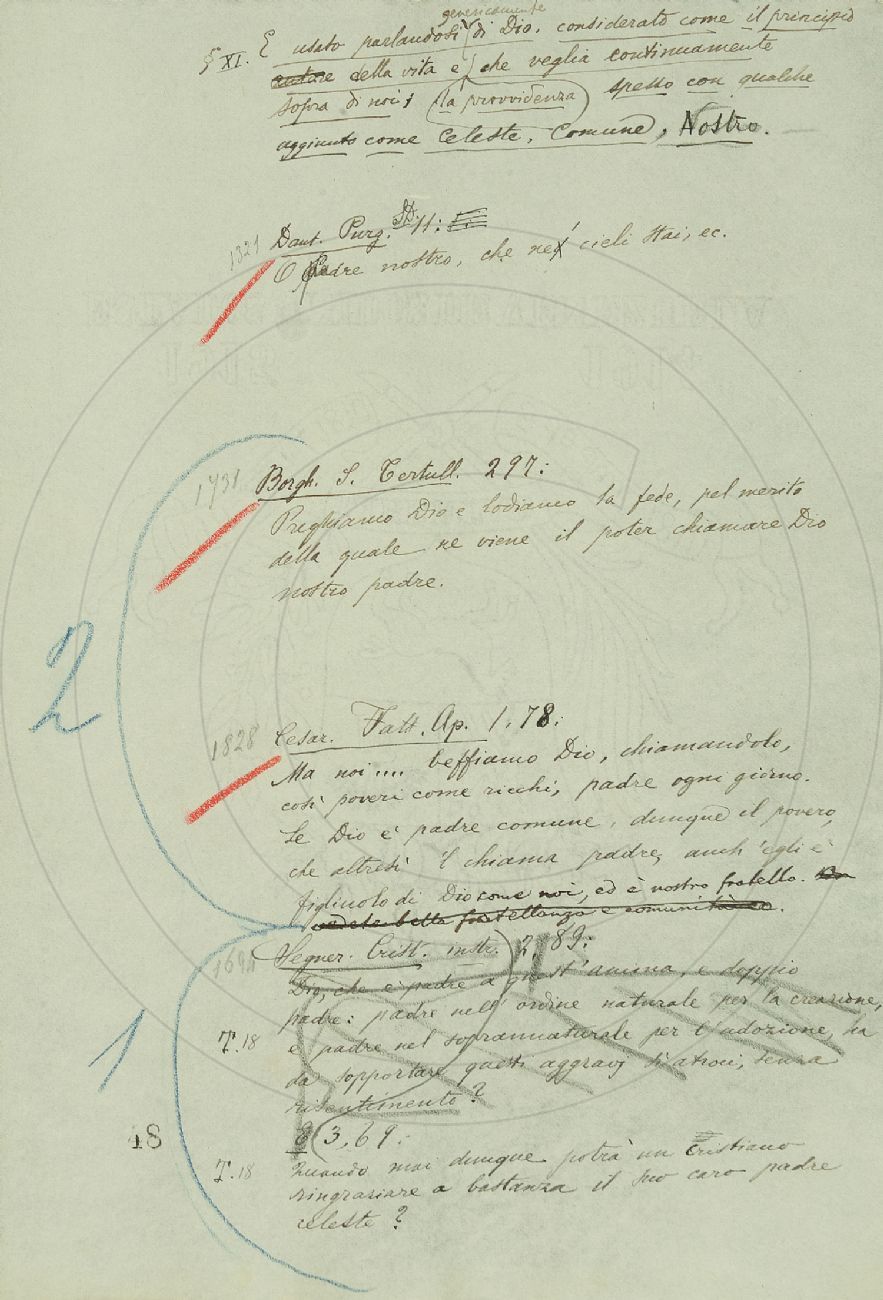 genericamente
§ XI. E usato parlandosi di Dio, considerato come il principio
autore della vita e che veglia continuamente
sopra di noi; (la provvidenza) spesso con qualche
aggiunto come Celeste, Comune, Nostro.
1321 Dant. Purg. SD. 11:
O Padre nostro, che ne' cieli stai, ec.
1731 Borgh. S. Tertull. 297:
Preghiamo Dio e lodiamo la fede, pel merito
della quale ne viene il poter chiamare Dio
nostro padre.
2
1828 Cesar. Fatt. Ap. 1.78:
Ma noi.... beffiamo Dio, chiamandolo,
così poveri come ricchi, padre ogni giorno.
Se Dio è padre comune, dunque il povero,
che altresì 'l chiama padre, anch'egli è
figliuolo di Dio come noi, ed è nostro fratello.
vedete bella fratellanza e comunità
1694 Segner. Crist. instr. 2, 89:
Dio, che è padre a quest'anima, e doppio
padre: padre nell'ordine naturale per la creazione,
T.18 e padre nel soprannaturale per l'adozione, ha
da sopportare questi aggravj sì atroci, senza
risentimento?
1
48
E 3, 69:
T.18 Quando mai dunque potrà un cristiano
ringraziare a bastanza il suo caro padre
celeste?